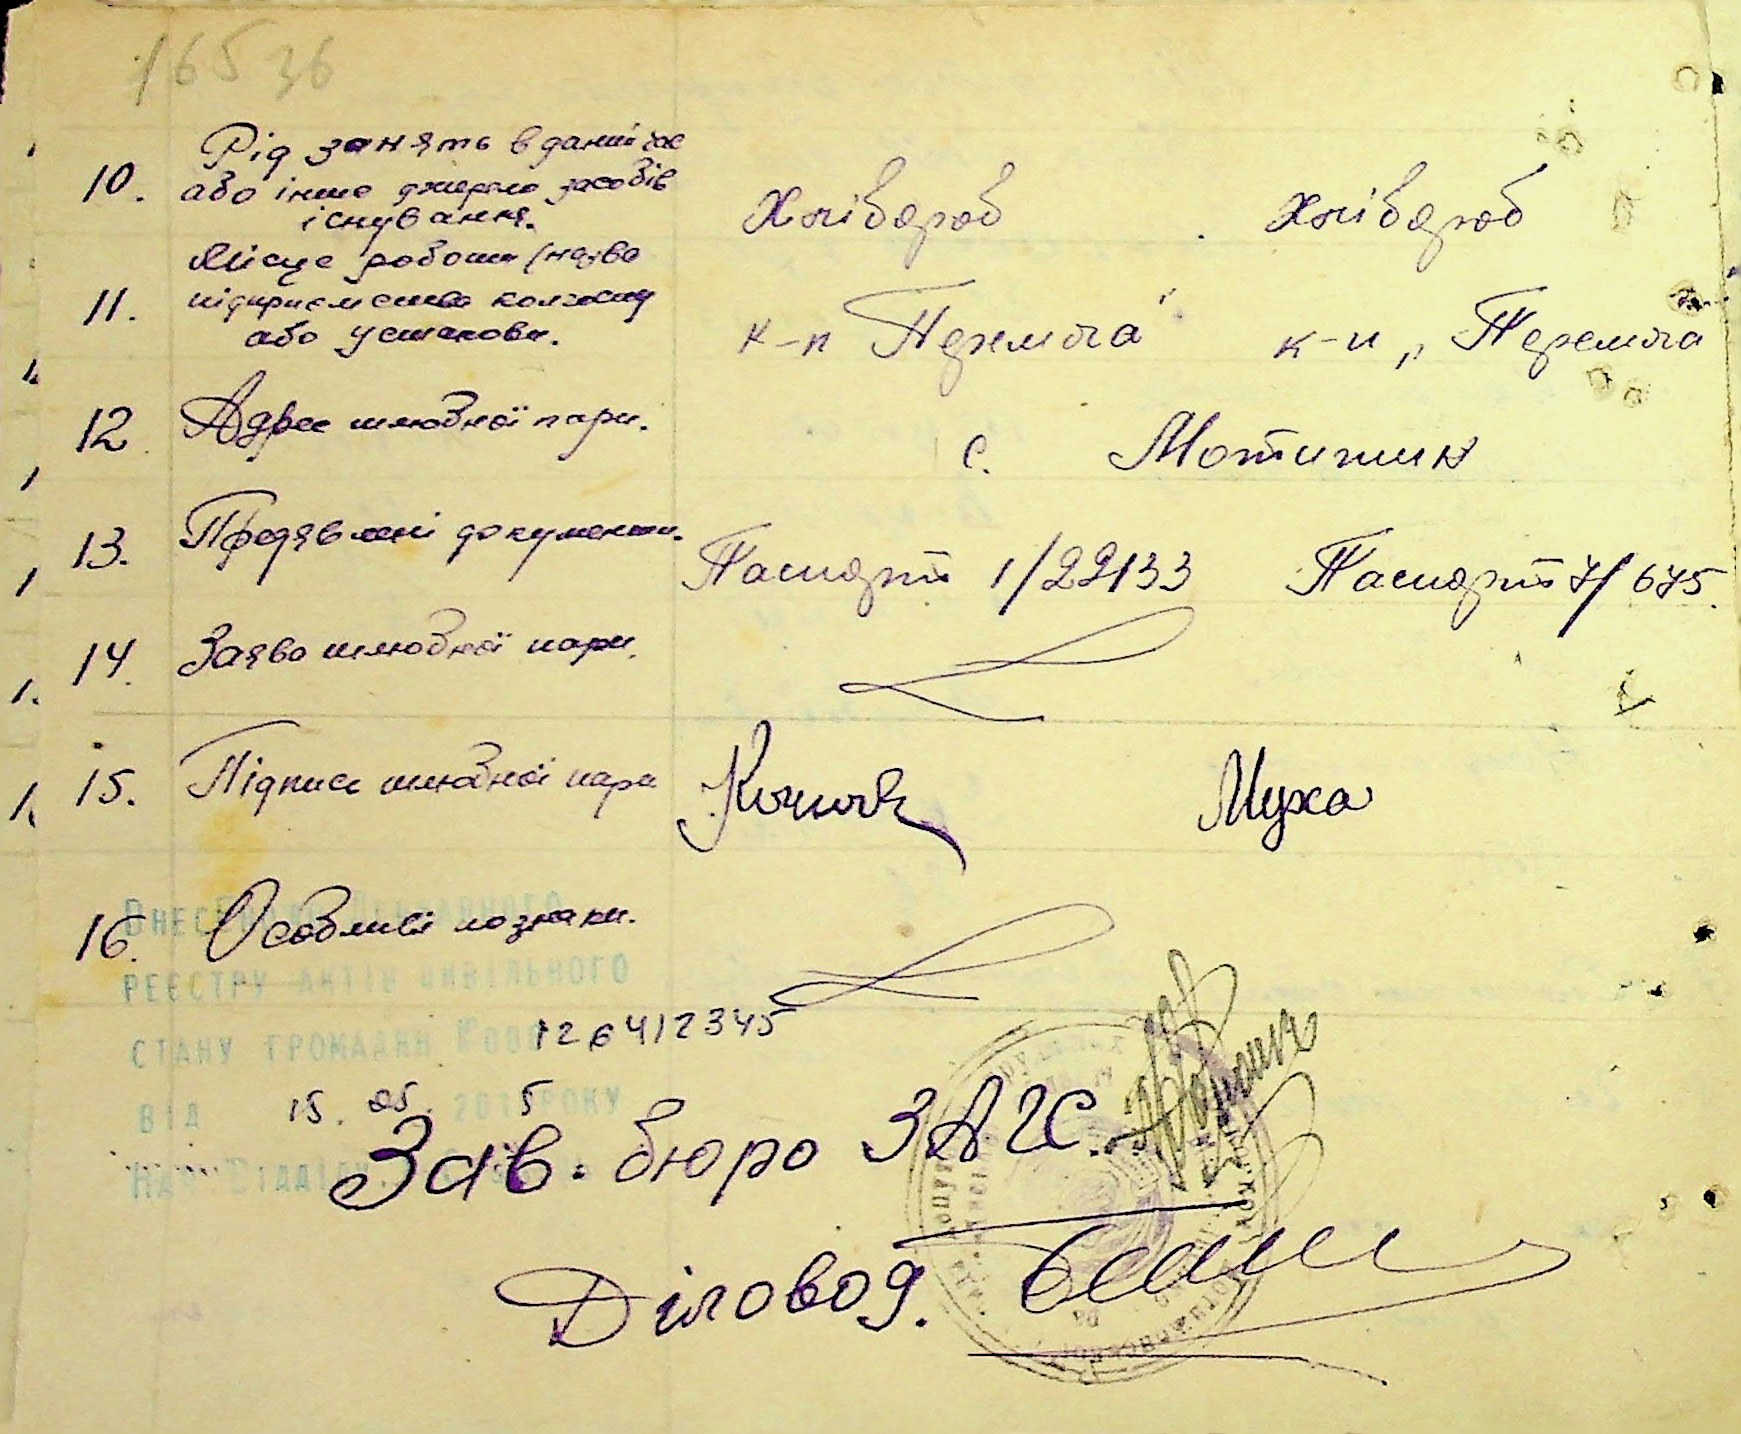 16536
Рід занять в даний час
10. або інше джерело засобів
існування.
Хлібороб Хлібороб
Місце роботи (назва
11. підприємства колгоспу
або установи.
к-п Перемога к-п „Перемога
12. Адрес шлюбної пари.
с. Мотижин
13. Предявлені документи.
Паспорт 1/22133 Паспорт 7/675.
14. Заява шлюбної пари.
15. Підписи шлюбної пари
Муха
16. Особливі познаки.
Внесено до Державного
реєстру актів цивільного
стану громадян
126412345
від 15. 05. 2015 року
Зав. бюро ЗАГС.
Діловод.